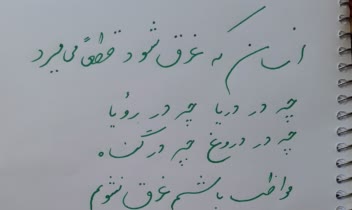 انسان که غرق شود قطعاً می‌میرد
چه در دریا چه در رؤیا
چه در دروغ چه در گناه
مواظب باشیم غرق نشویم